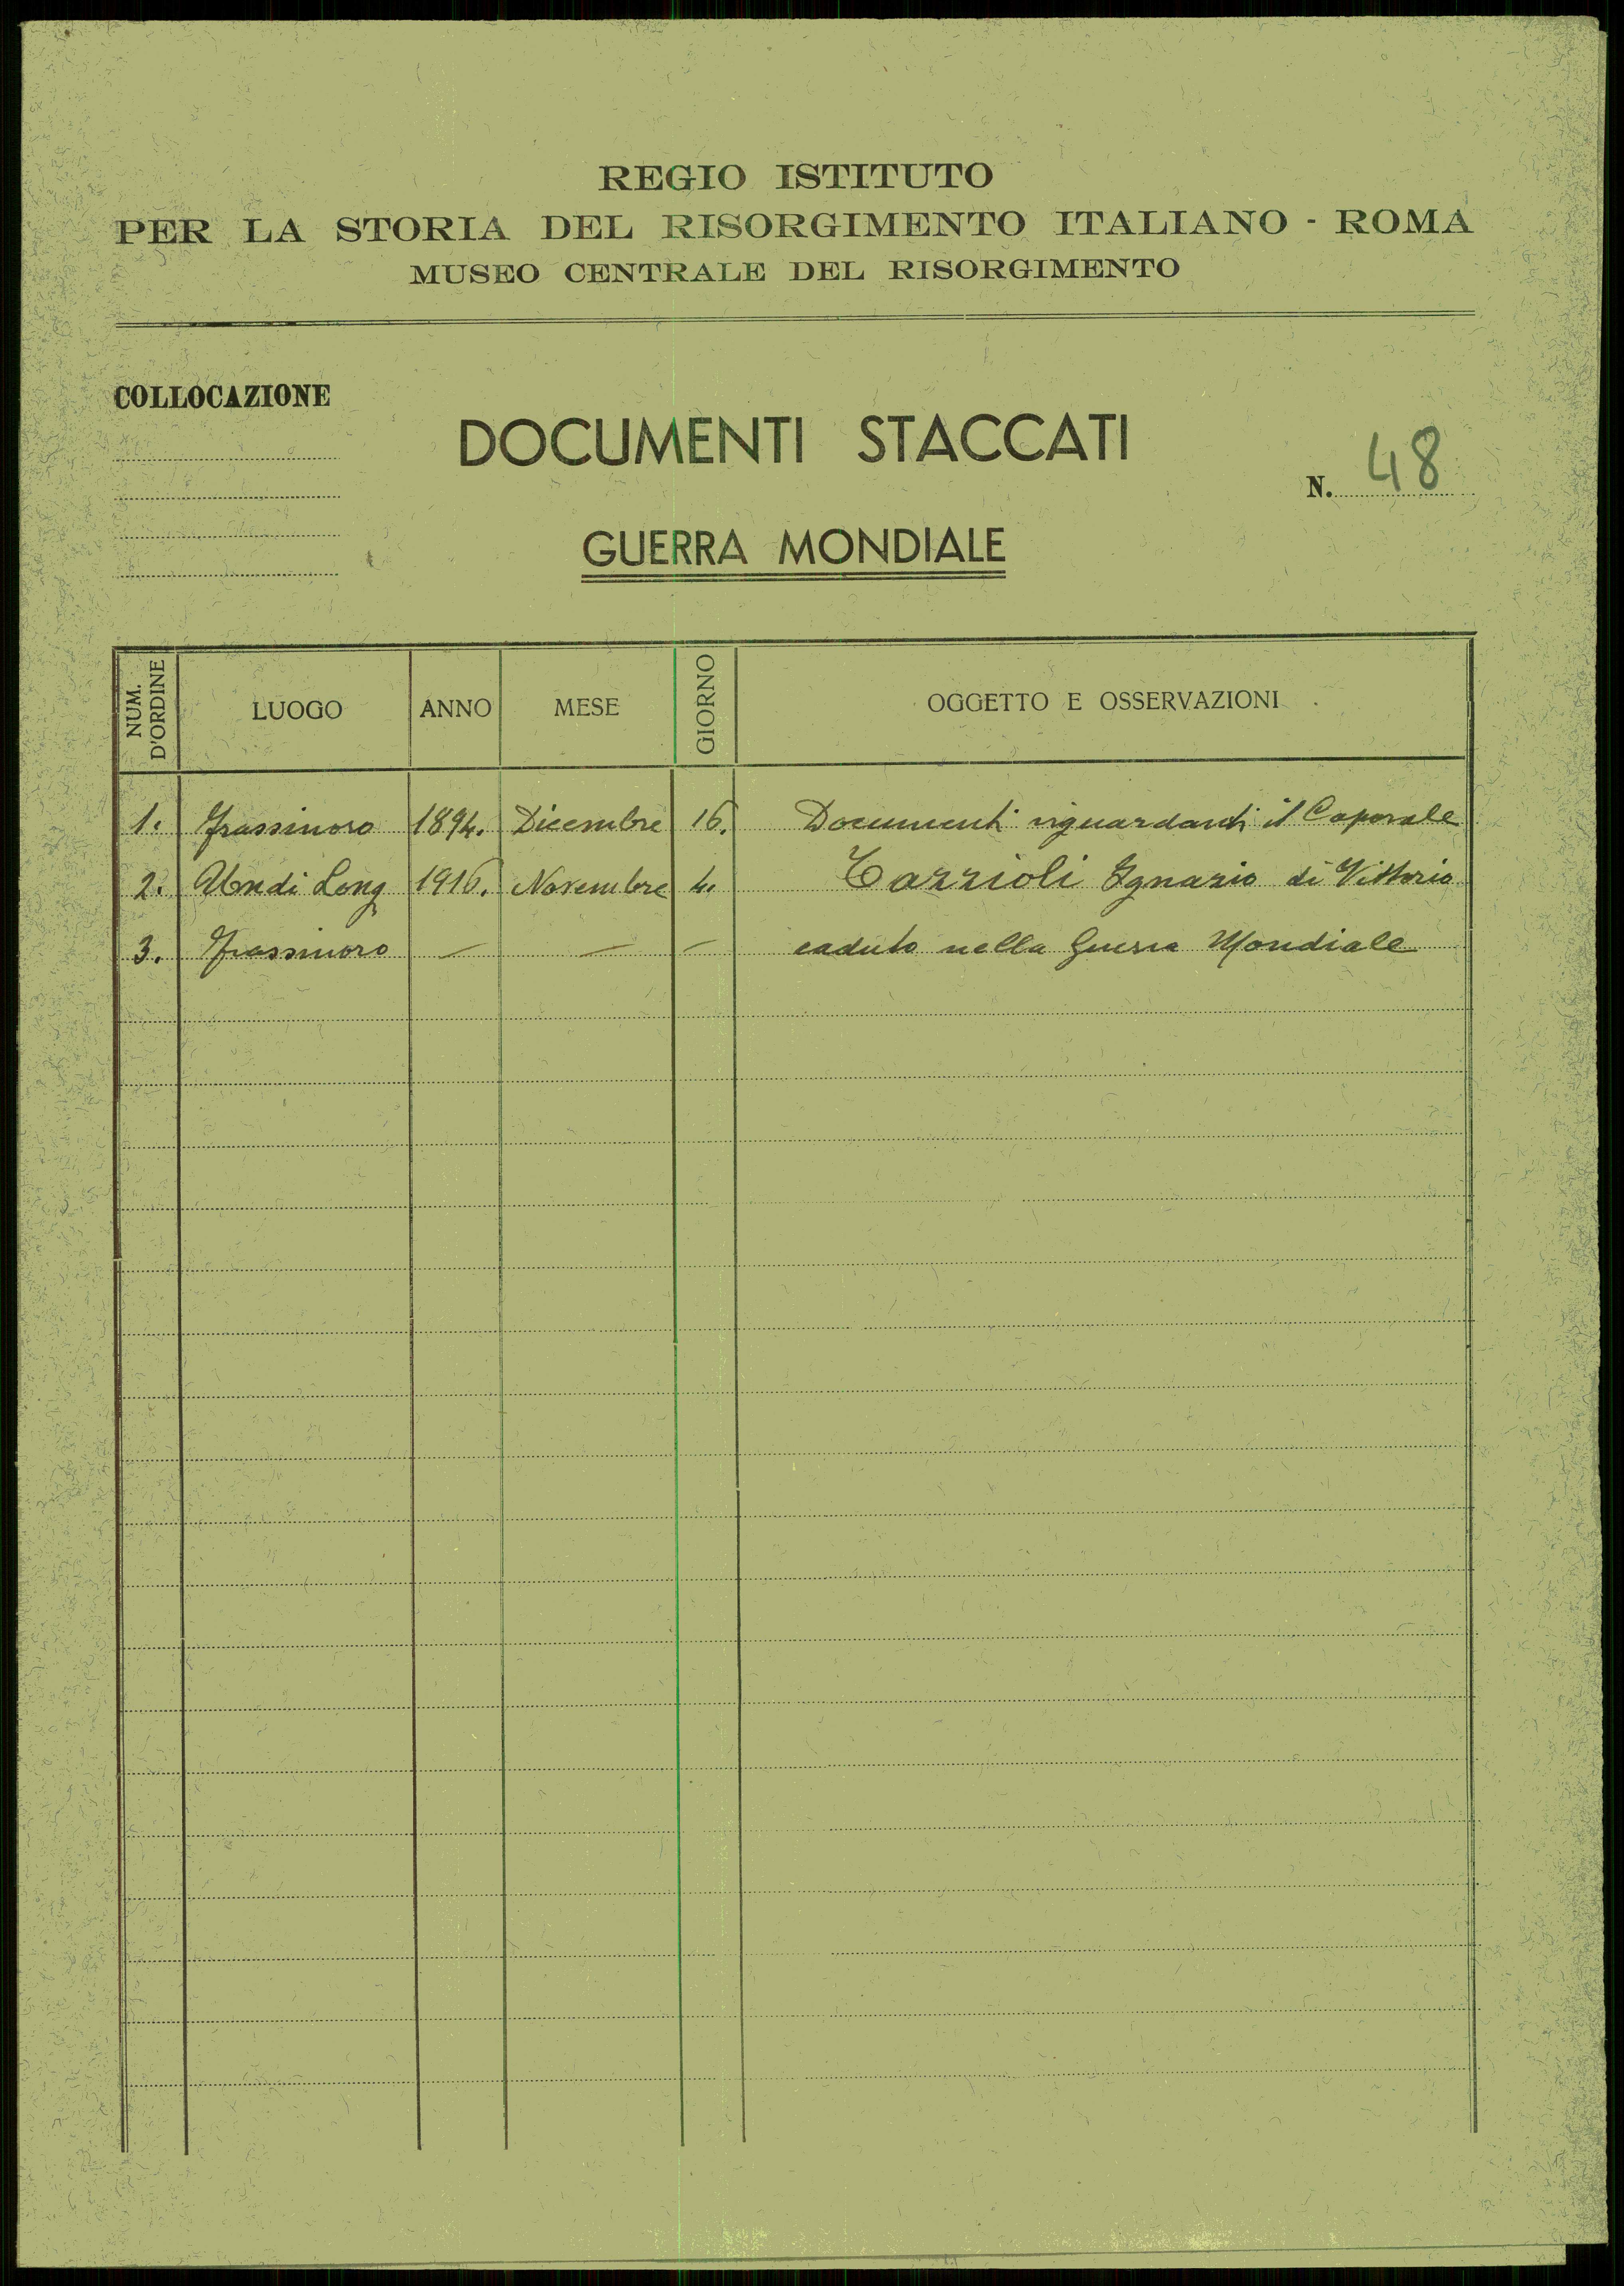 REGIO ISTITUTO
PER LA STORIA DEL RISORGIMENTO ITALIANO - ROMA
MUSEO CENTRALE DEL RISORGIMENTO
COLLOCAZIONE
DOCUMENTI STACCATI
N. 48
GUERRA MONDIALE
NUM. D'ORDINE LUOGO ANNO MESE GIORNO OGGETTO E OSSERVAZIONI
1. Frassinoro 1894. Dicembre 16. Documenti riguardanti il Caporale
2. 1916. Novembre 4. Tazzioli Ignazio di Vittorio
3. Frassinoro — — — caduto nella Guerra Mondiale